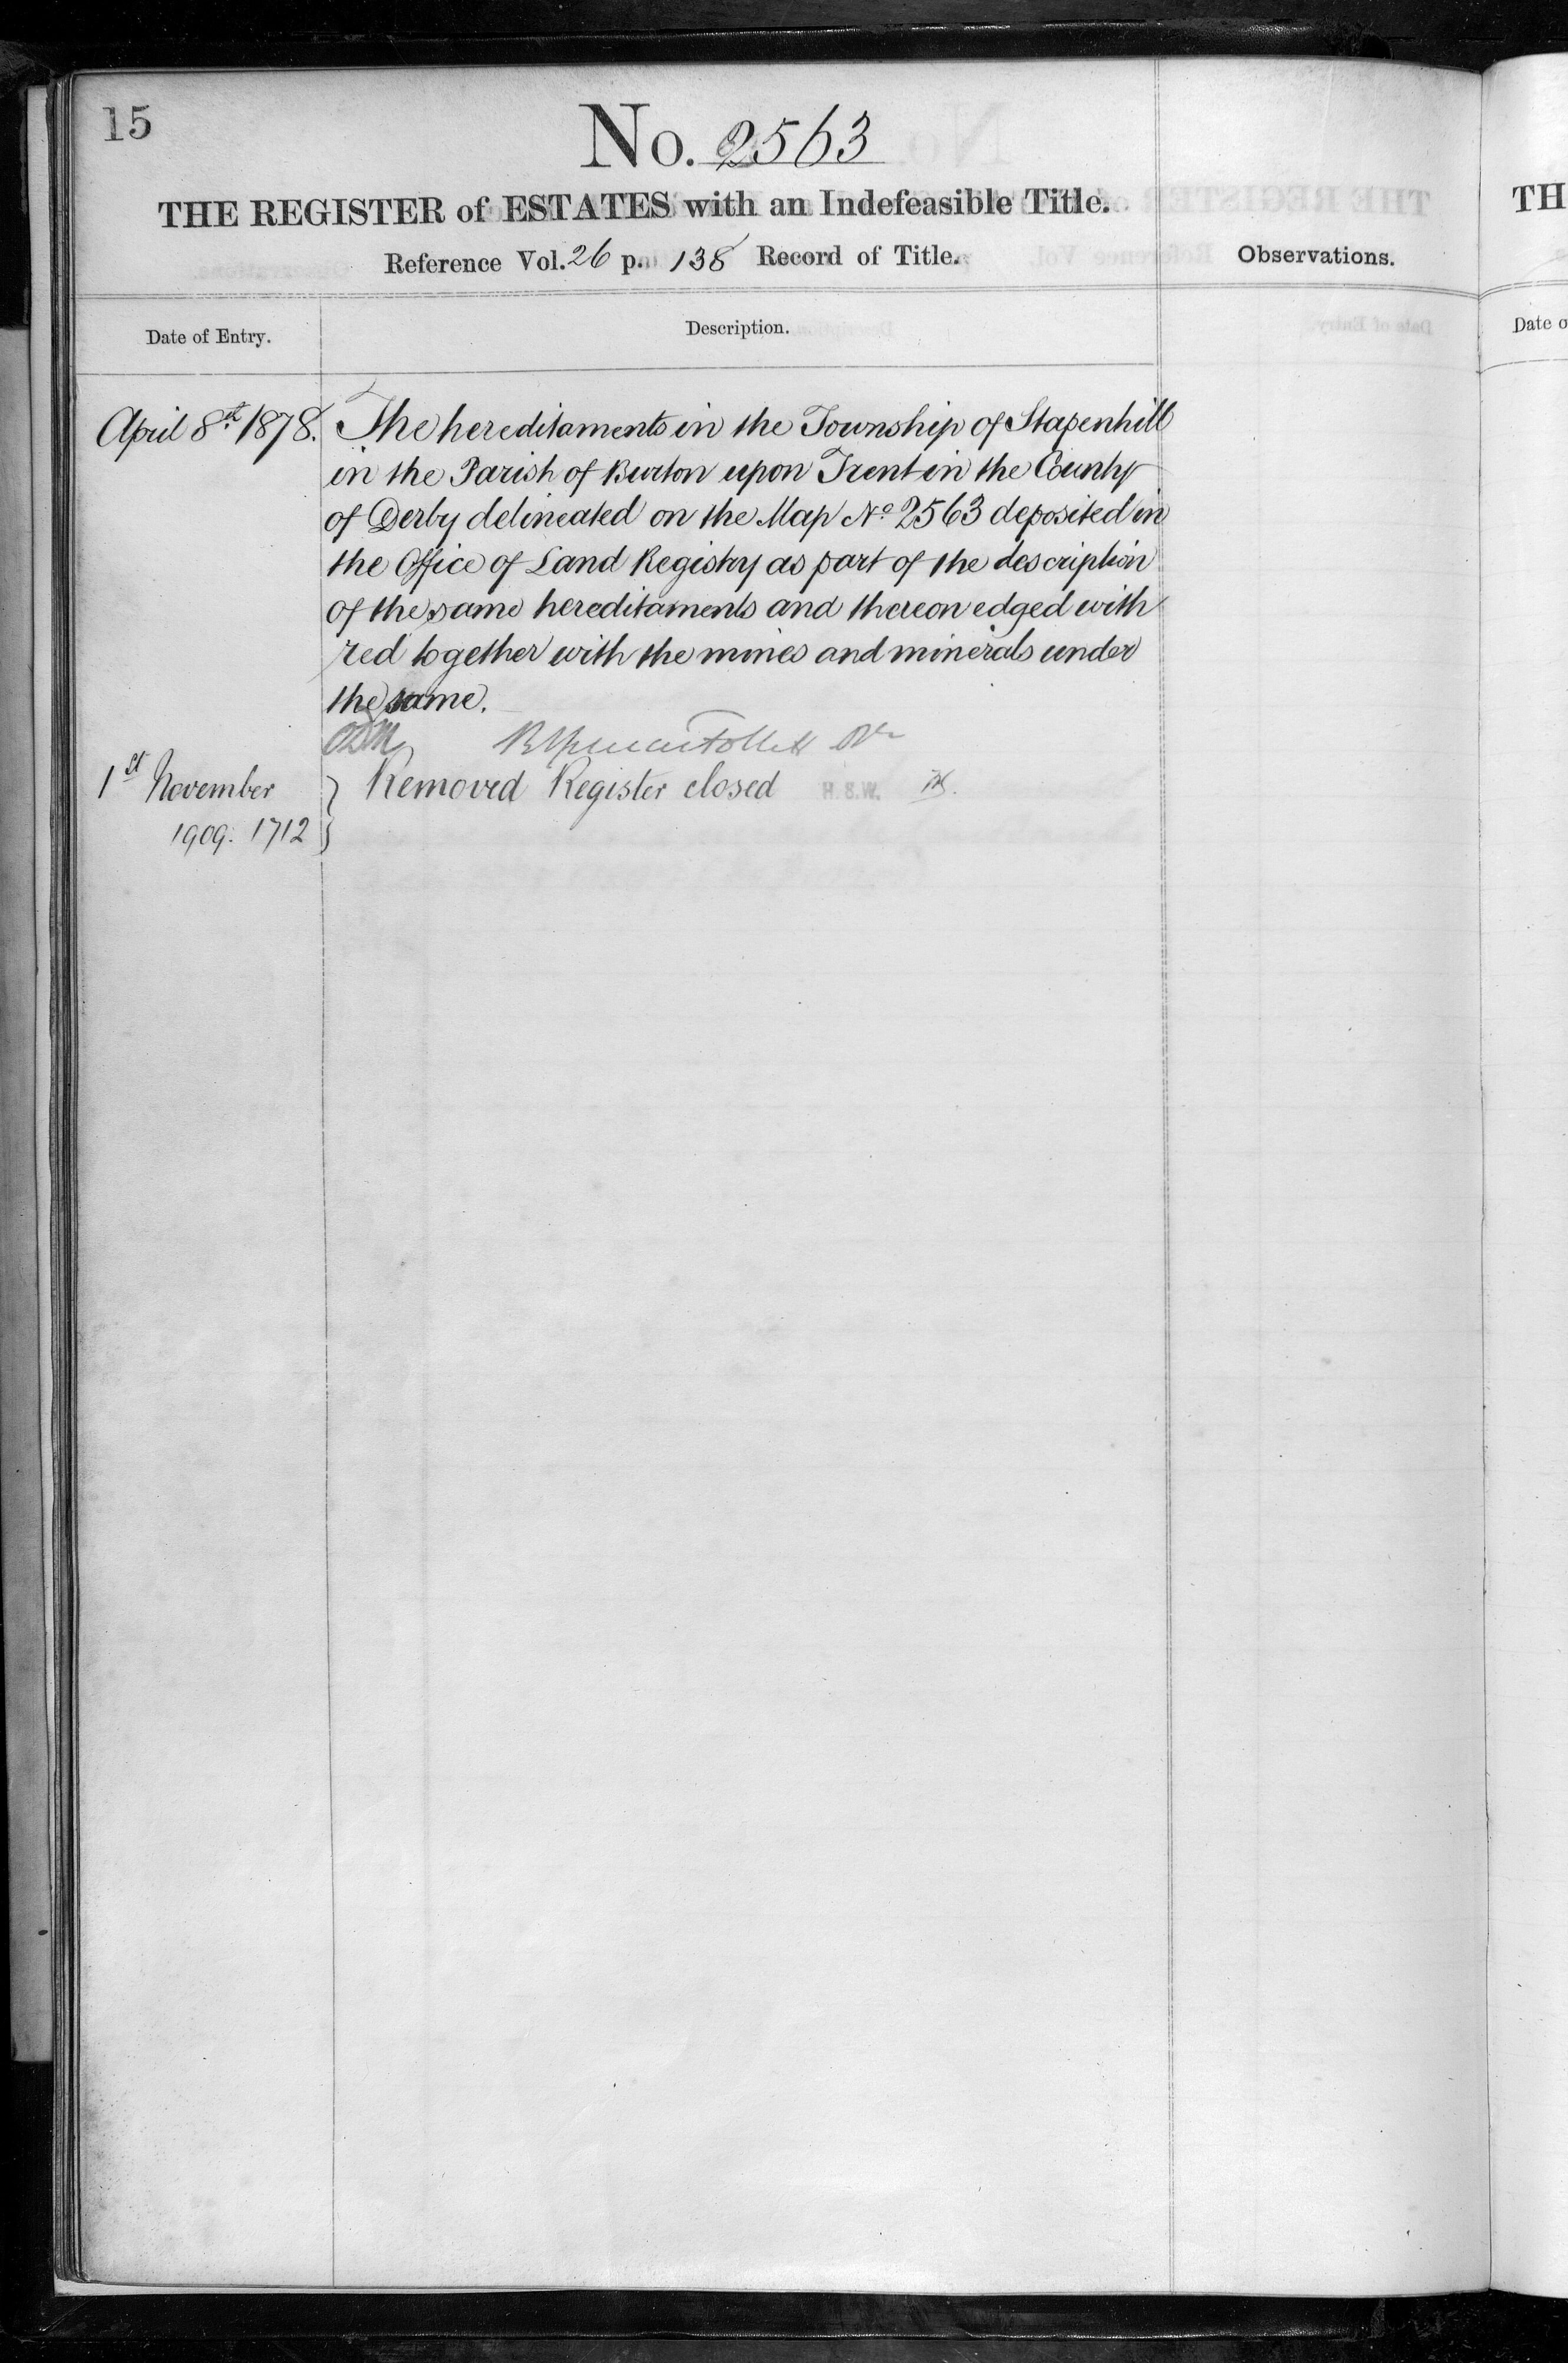 15
No. 2563
THE REGISTER of ESTATES with an Indefeasible Title.
Reference Vol. 26 p. 138 Record of Title.
Observations.
Date of Entry.
Description.
April 8th 1878. The hereditaments in the Township of Stapenhill
in the Parish of Burton upon Trent in the County
of Derby delineated on the Map No. 2563 deposited in
the Office of Land Registry as part of the description
of the same hereditaments and thereon edged with
red together with the mines and minerals under
the same.
1st November } Removed Register closed H.S.W.
1909. 1712 }
TH
Date o